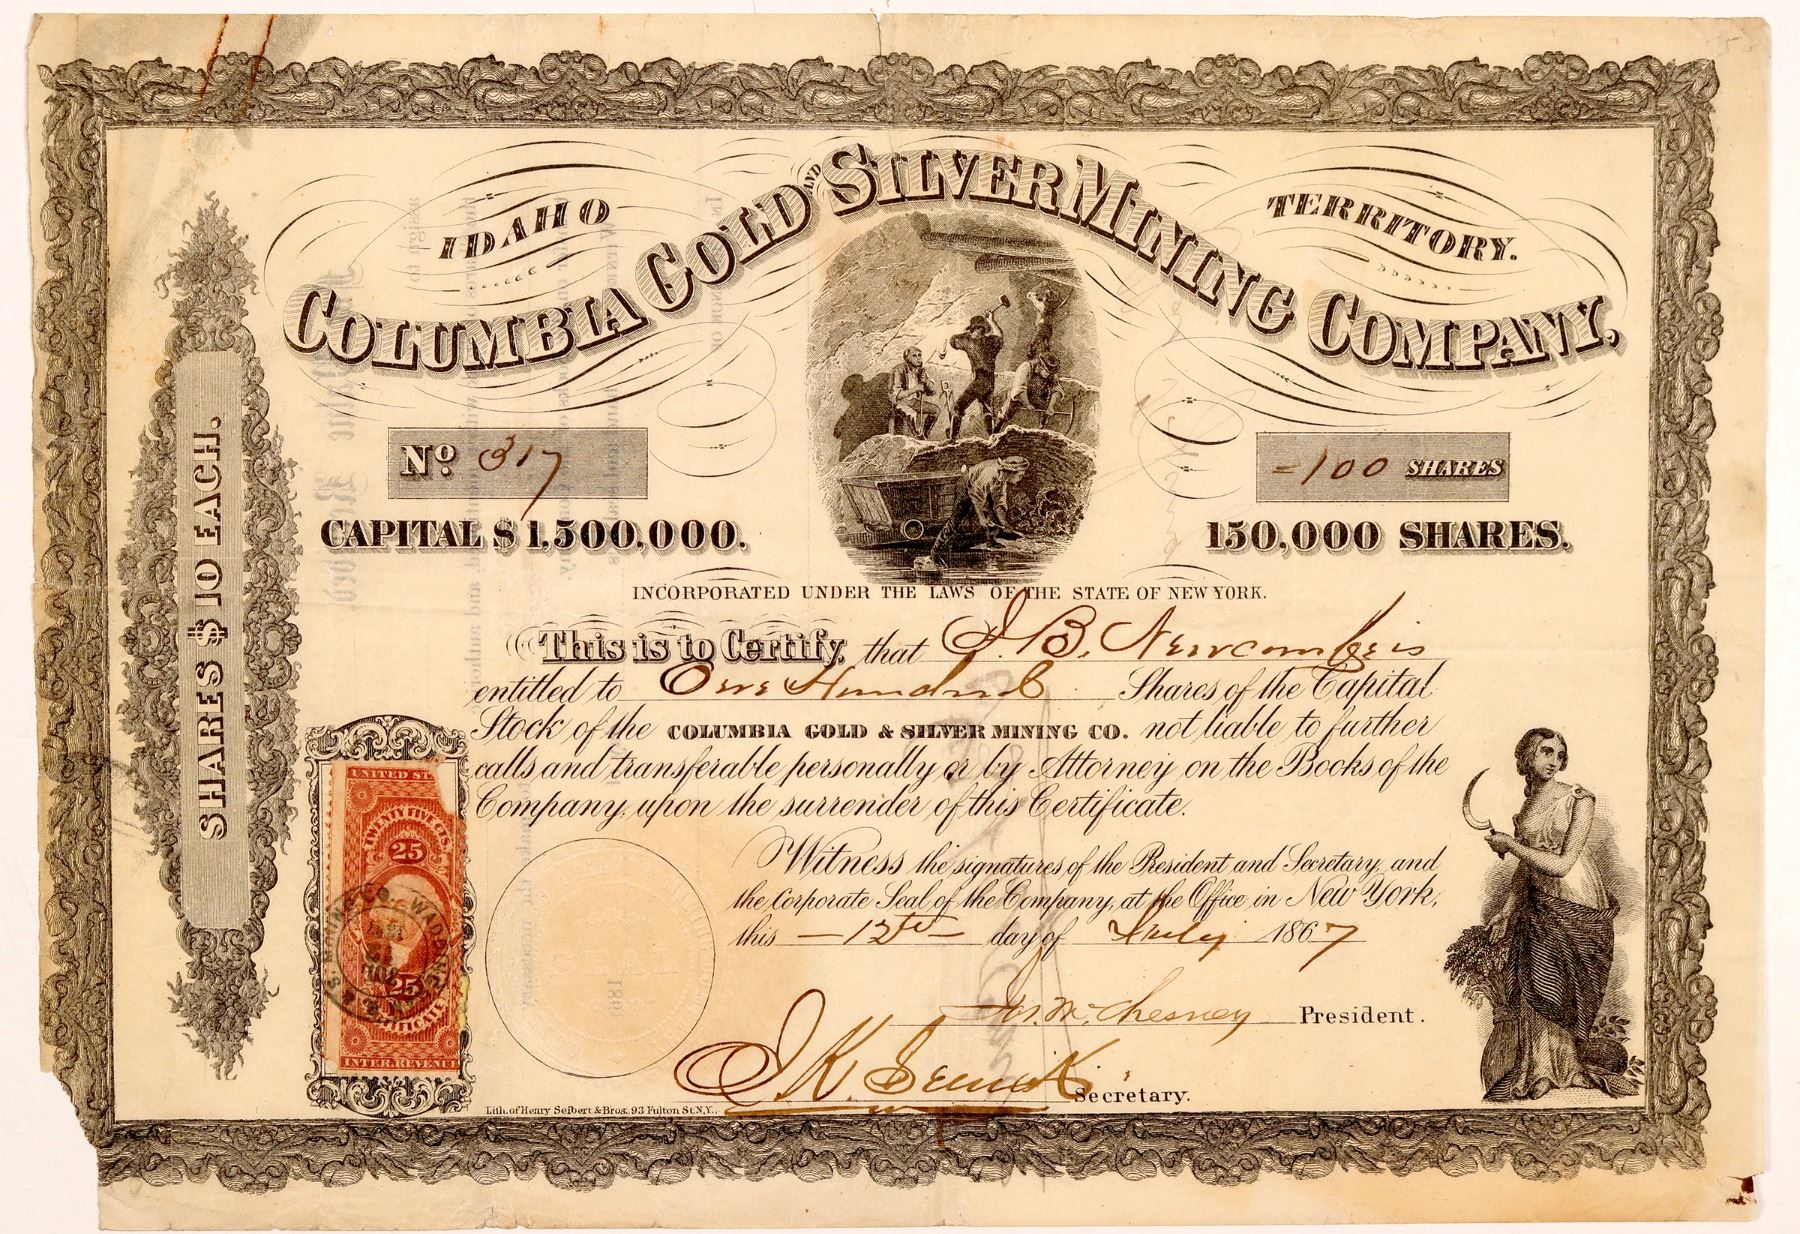 IDAHO TERRITORY.
COLUMBIA GOLD AND SILVER MINING COMPANY,
No 317
-100 SHARES
CAPITAL $1,500,000.
150,000 SHARES.
SHARES $10 EACH.
INCORPORATED UNDER THE LAWS OF THE STATE OF NEW YORK.
This is to Certify, that J. B. Newcomb is
entitled to One Hundred Shares of the Capital
Stock of the COLUMBIA GOLD & SILVER MINING CO. not liable to further
calls and transferable personally or by Attorney on the Books of the
Company, upon the surrender of this Certificate.
Witness the signatures of the President and Secretary, and
the Corporate Seal of the Company, at the Office in New York,
this -12th- day of July 1867
McChesney President.
J. K. Secretary.
UNITED ST
TWENTY FIVE CTS.
25
25
CERTIFICATE
INTER. REVENUE
Lith. of Henry Seibert & Bros. 93 Fulton St. N.Y.